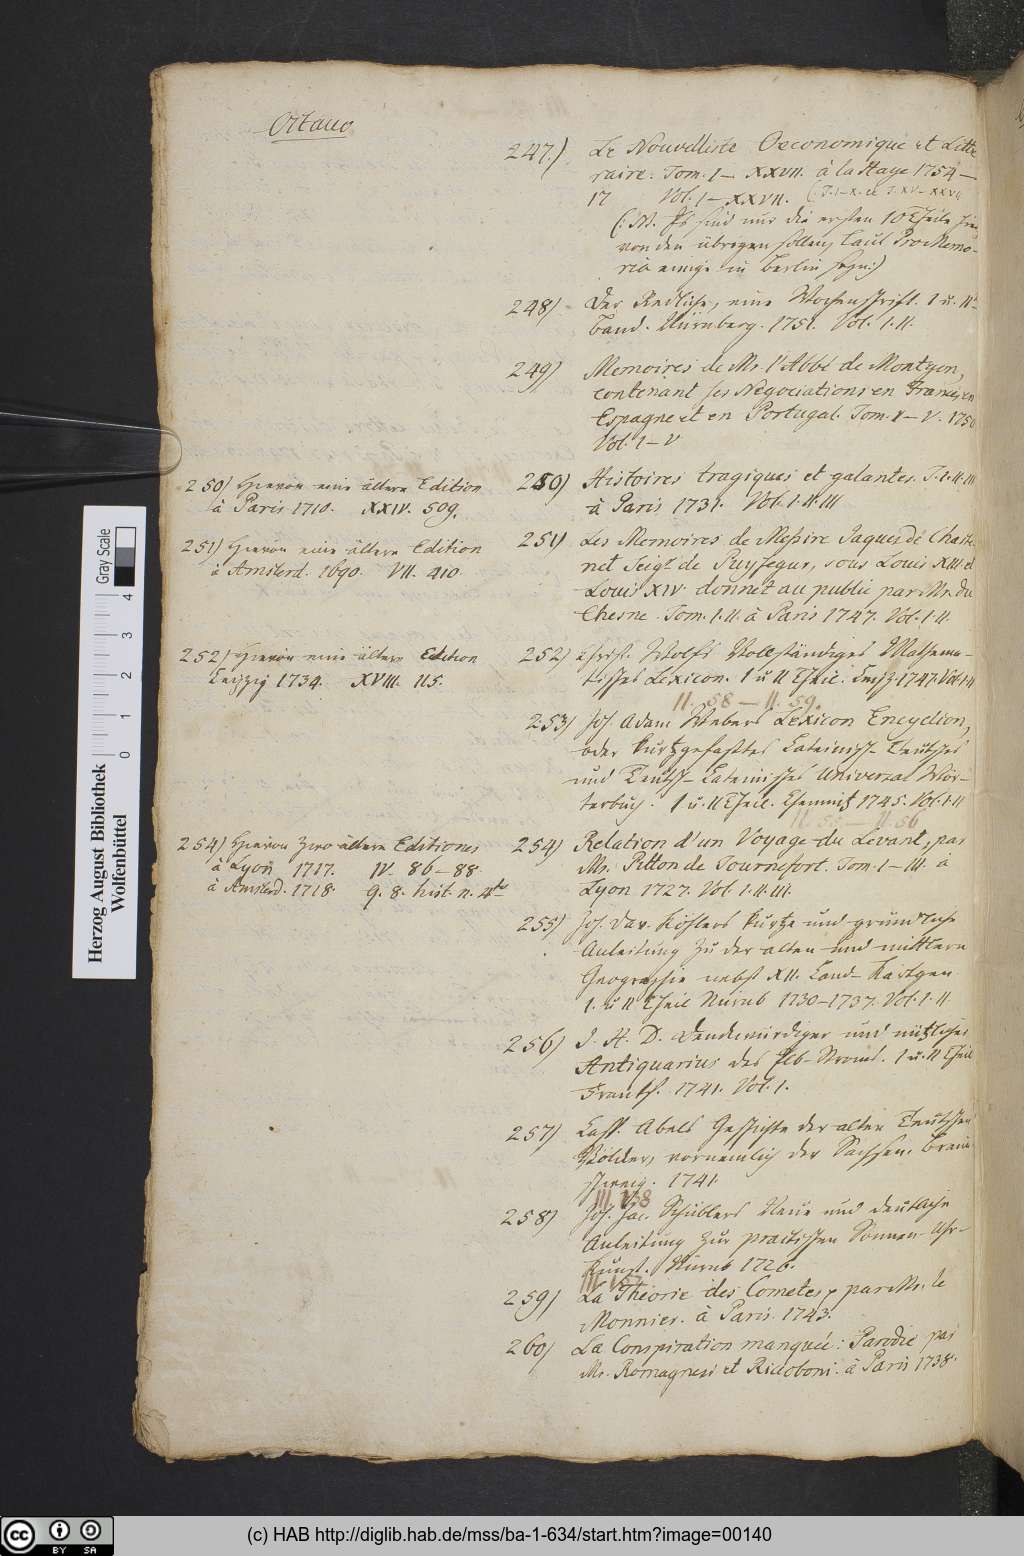 Octavo
247.) Le Nouvelliste Oeconomique et Litte
raire. Tom. I – XXVII. à la Haye 1754 –
17 Vol. I – XXVII. (T. I–X. et T. XV–XXVII
(: M. Es sind nur die ersten 10 Theile hie
von den übrigen sollen, laut Pro Memo-
ria einige in Berlin seyn:)
248) Der Redliche, eine Wochenschrift. I u. IIr
Band. Nürnberg. 1751. Vol. I. II.
249) Memoires de Mr. l'Abbé de Montgon,
contenant ses Negociations en France, en
Espagne et en Portugal. Tom. I – V. 1750
Vol. I – V
250) Hiervon eine ältere Edition
à Paris 1710. XXIV. 509.
250) Histoires tragiques et galantes. T. I. II. III
à Paris 1731. Vol. I. II. III
251) Hiervon eine ältere Edition
à Amsterd. 1690. VII. 410.
251) Les Memoires de Messire Jaques de Chaste
net Seigr. de Puysegur, sous Louis XIII. et
Louis XIV. donnet au public par Mr. du
Chesne. Tom. I. II. à Paris 1747. Vol. I. II.
252) Hiervon eine ältere Edition
Leipzig 1734. XVIII. 115.
252) Christ. Wolfs Vollständiges Mathema-
tisches Lexicon. I u II Theil. Leipz. 1747. Vol. I. II
II. 58 – II. 59.
253) Joh. Adam Webers Lexicon Encyclion,
oder kurtzgefasstes Lateinisch-Teutsches
und Teutsch-Lateinisches Universal Wör-
terbuch. I u. II Theil. Chemnitz 1745. Vol. I. II
II. 55 – II. 56
254) Hiervon zwo ältere Editiones
à Lyon 1717. IV. 86 – 88
à Amsterd. 1718. 9. 8. hist. n. 4to
254) Relation d'un Voyage du Levant, par
Mr. Pitton de Tournefort. Tom. I – III. à
Lyon 1727. Vol. I. II. III.
255) Joh. Dav. Köhlers kurtze und gründliche
Anleitung zu der alten und mittlern
Geographie nebst XII. Land-Kärtgen.
I. u II Theil Nürnb. 1730–1737. Vol. I. II
256) J. H. D. Denckwürdiger und nützlicher
Antiquarius des Elb-Stroms. I u. II Theil
Franckf. 1741. Vol. I.
257) Casp. Abels Geschichte der alten Teutschen
Völcker, vornemlich der Sachsen. Braun
schweig. 1741.
III. 158
258) Joh. Jac. Schüblers Neue und deutliche
Anleitung zur practischen Sonnen-Uhr-
Kunst. Nürnb 1726.
III. 157
259) La Theorie des Cometes, par Mr. le
Monnier. à Paris. 1743.
260) La Conspiration manquée: Parodie par
Mr. Romagnesi et Riccoboni. à Paris 1738.
Herzog August Bibliothek
Wolfenbüttel
Gray Scale
0 1 2 3 4
cc BY SA
(c) HAB http://diglib.hab.de/mss/ba-1-634/start.htm?image=00140